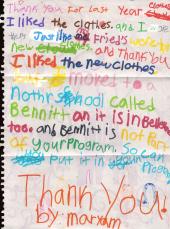 Thank You For Last Year
I liked the clothes. and I
Just like Frieds were
new and Thank You
I liked the new clothes.
moved to a
Nothr School called
Bennitt an it is in Bell
too. and Bennitt is not Part
of yourProgram. So can
Put it in your Progr
Thank You!
by: maryam